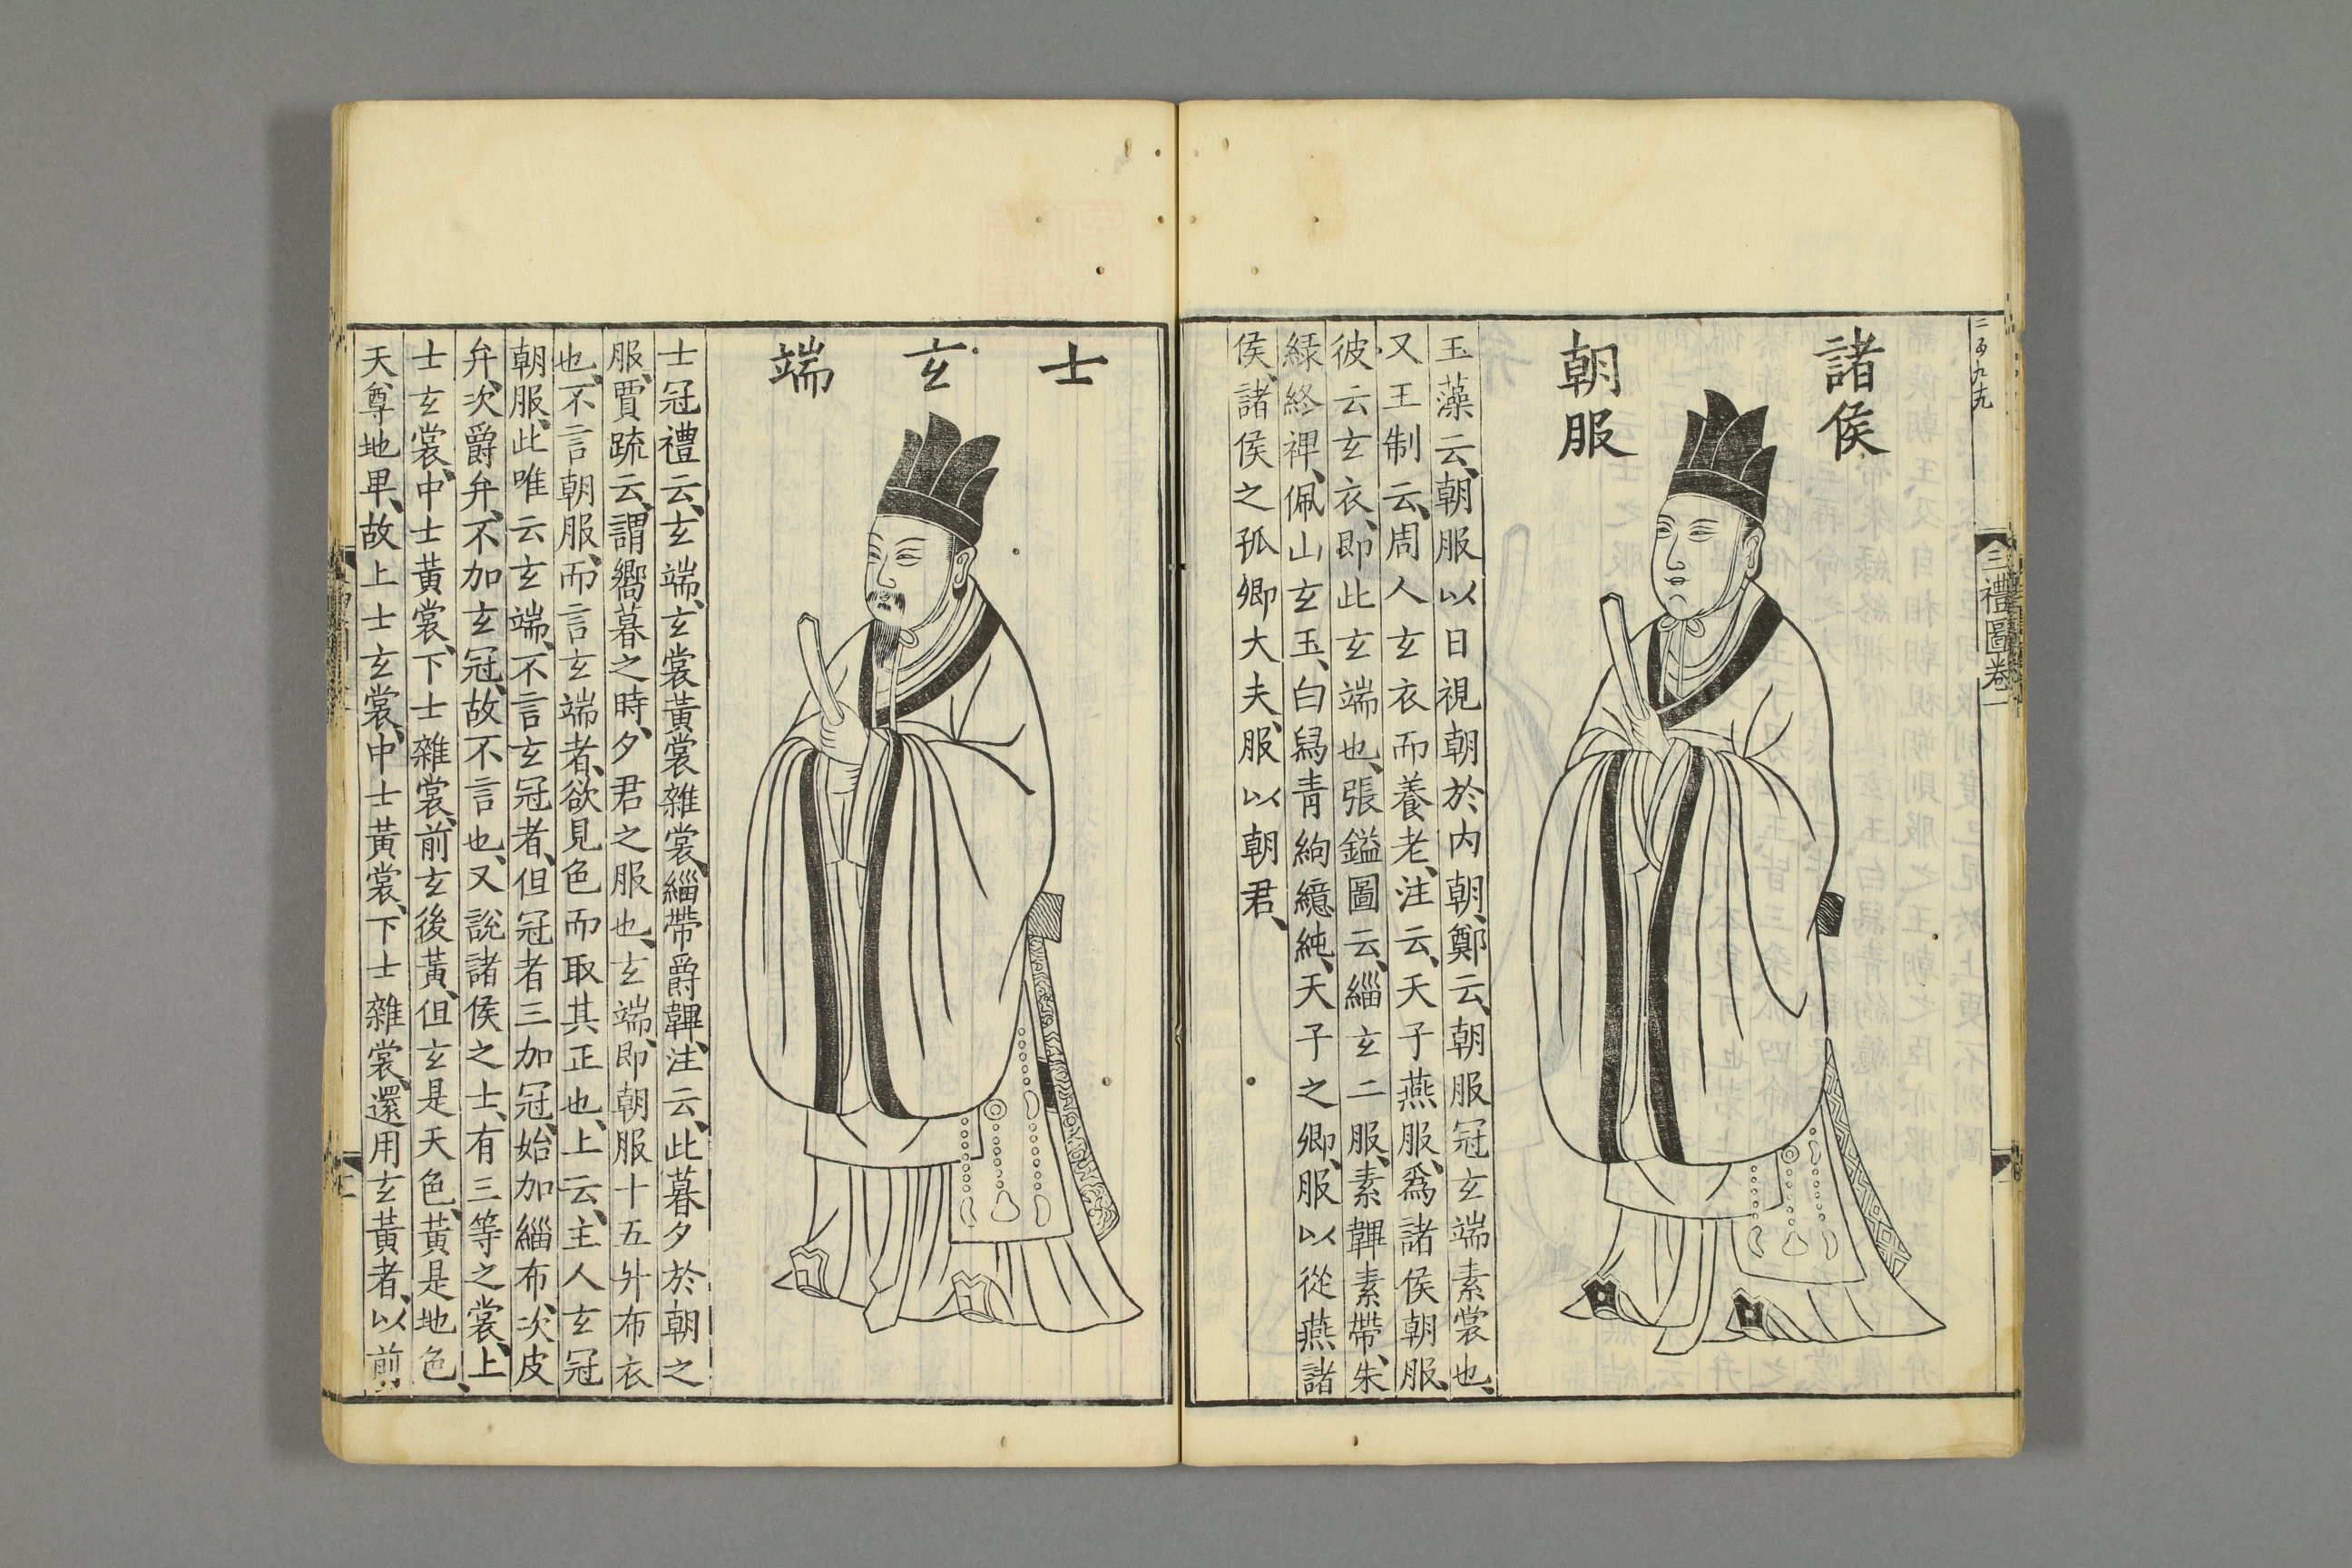 三禮圖卷一
諸侯
朝服
玉藻云、朝服以日視朝於内朝、鄭云、朝服冠玄端素裳也、
又王制云、周人玄衣而養老、注云、天子燕服、爲諸侯朝服、
彼云玄衣、即此玄端也、張鎰圖云、緇玄二服、素韠素帶、朱
緑終裨、佩山玄玉、白舄青絇繶純、天子之卿、服以從燕諸
侯、諸侯之孤卿大夫、服以朝君、
士
玄
端
士冠禮云、玄端、玄裳黃裳雜裳、緇帶爵韠、注云、此暮夕於朝之
服、賈疏云、謂嚮暮之時、夕君之服也、玄端、即朝服十五升布衣
也、不言朝服、而言玄端者、欲見色而取其正也、上云、主人玄冠
朝服、此唯云玄端、不言玄冠者、但冠者三加冠、始加緇布、次皮
弁、次爵弁、不加玄冠、故不言也、又說諸侯之士、有三等之裳、上
士玄裳、中士黃裳、下士雜裳、前玄後黃、但玄是天色、黃是地色、
天尊地卑、故上士玄裳、中士黃裳、下士雜裳、還用玄黃者、以前